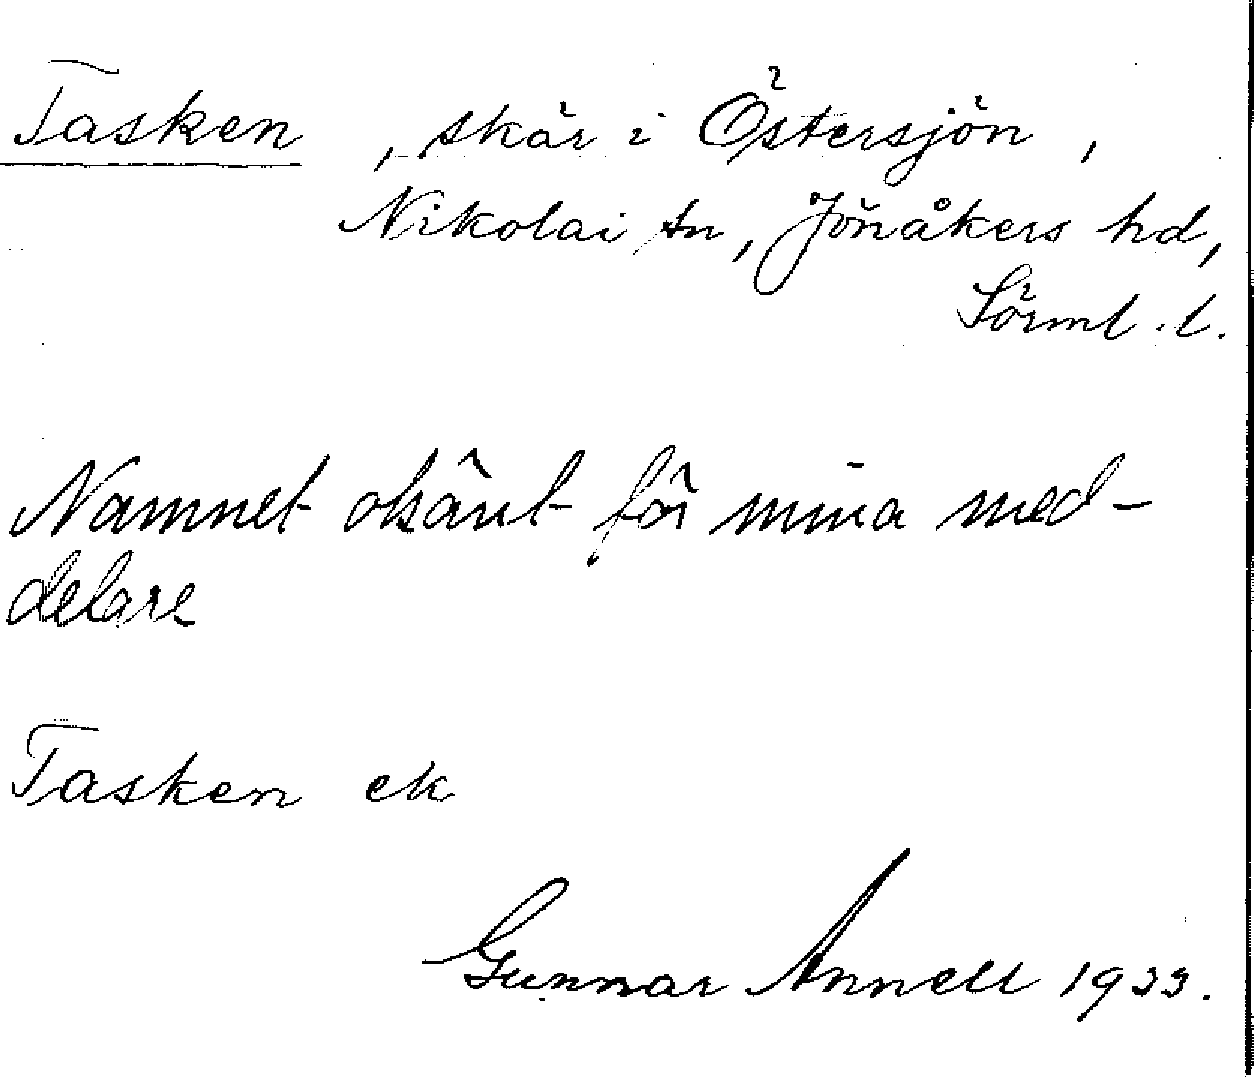 Tasken , skär i Östersjön ,
Nikolai sn, Jönåkers hd,
Sörml. l.
Namnet okänt för mina med-
delare
Tasken ek
Gunnar Annell 1933.